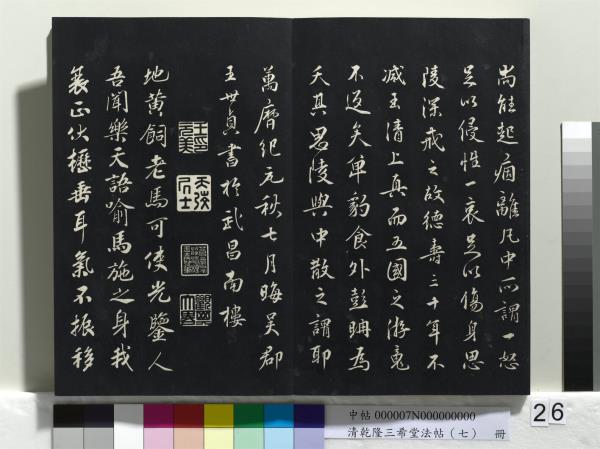 尚能起病離凡中所謂一怒
足以侵性一哀足以傷身思
陵深戒之故德壽三十年不
減玉清上真而五國之游竟
不返矣單豹食外彭聃為
夭其思陵與中散之謂耶
萬曆紀元秋七月晦吳郡
王世貞書於武昌南樓
天弢居士
地黃飼老馬可使光鑒人
吾聞樂天語喻馬施之身我
衰正伏櫪垂耳氣不振移
中帖 000007N000000000
清乾隆三希堂法帖（七） 冊
26